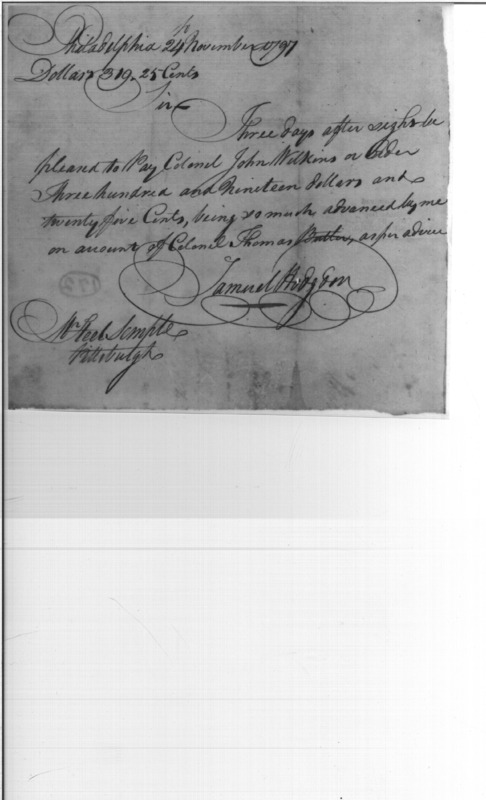 Philadelphia 24th November 1797
Dollars 319.25 Cents
Sir
Three days after sight be
pleased to Pay Colonel John Wilkins or Order
Three hundred and nineteen dollars and
twenty five Cents, being so much advanced by me
on account of Colonel Thomas Butler, as per advice
Samuel Hodgdon
172
Mr Semple
Pittsburgh